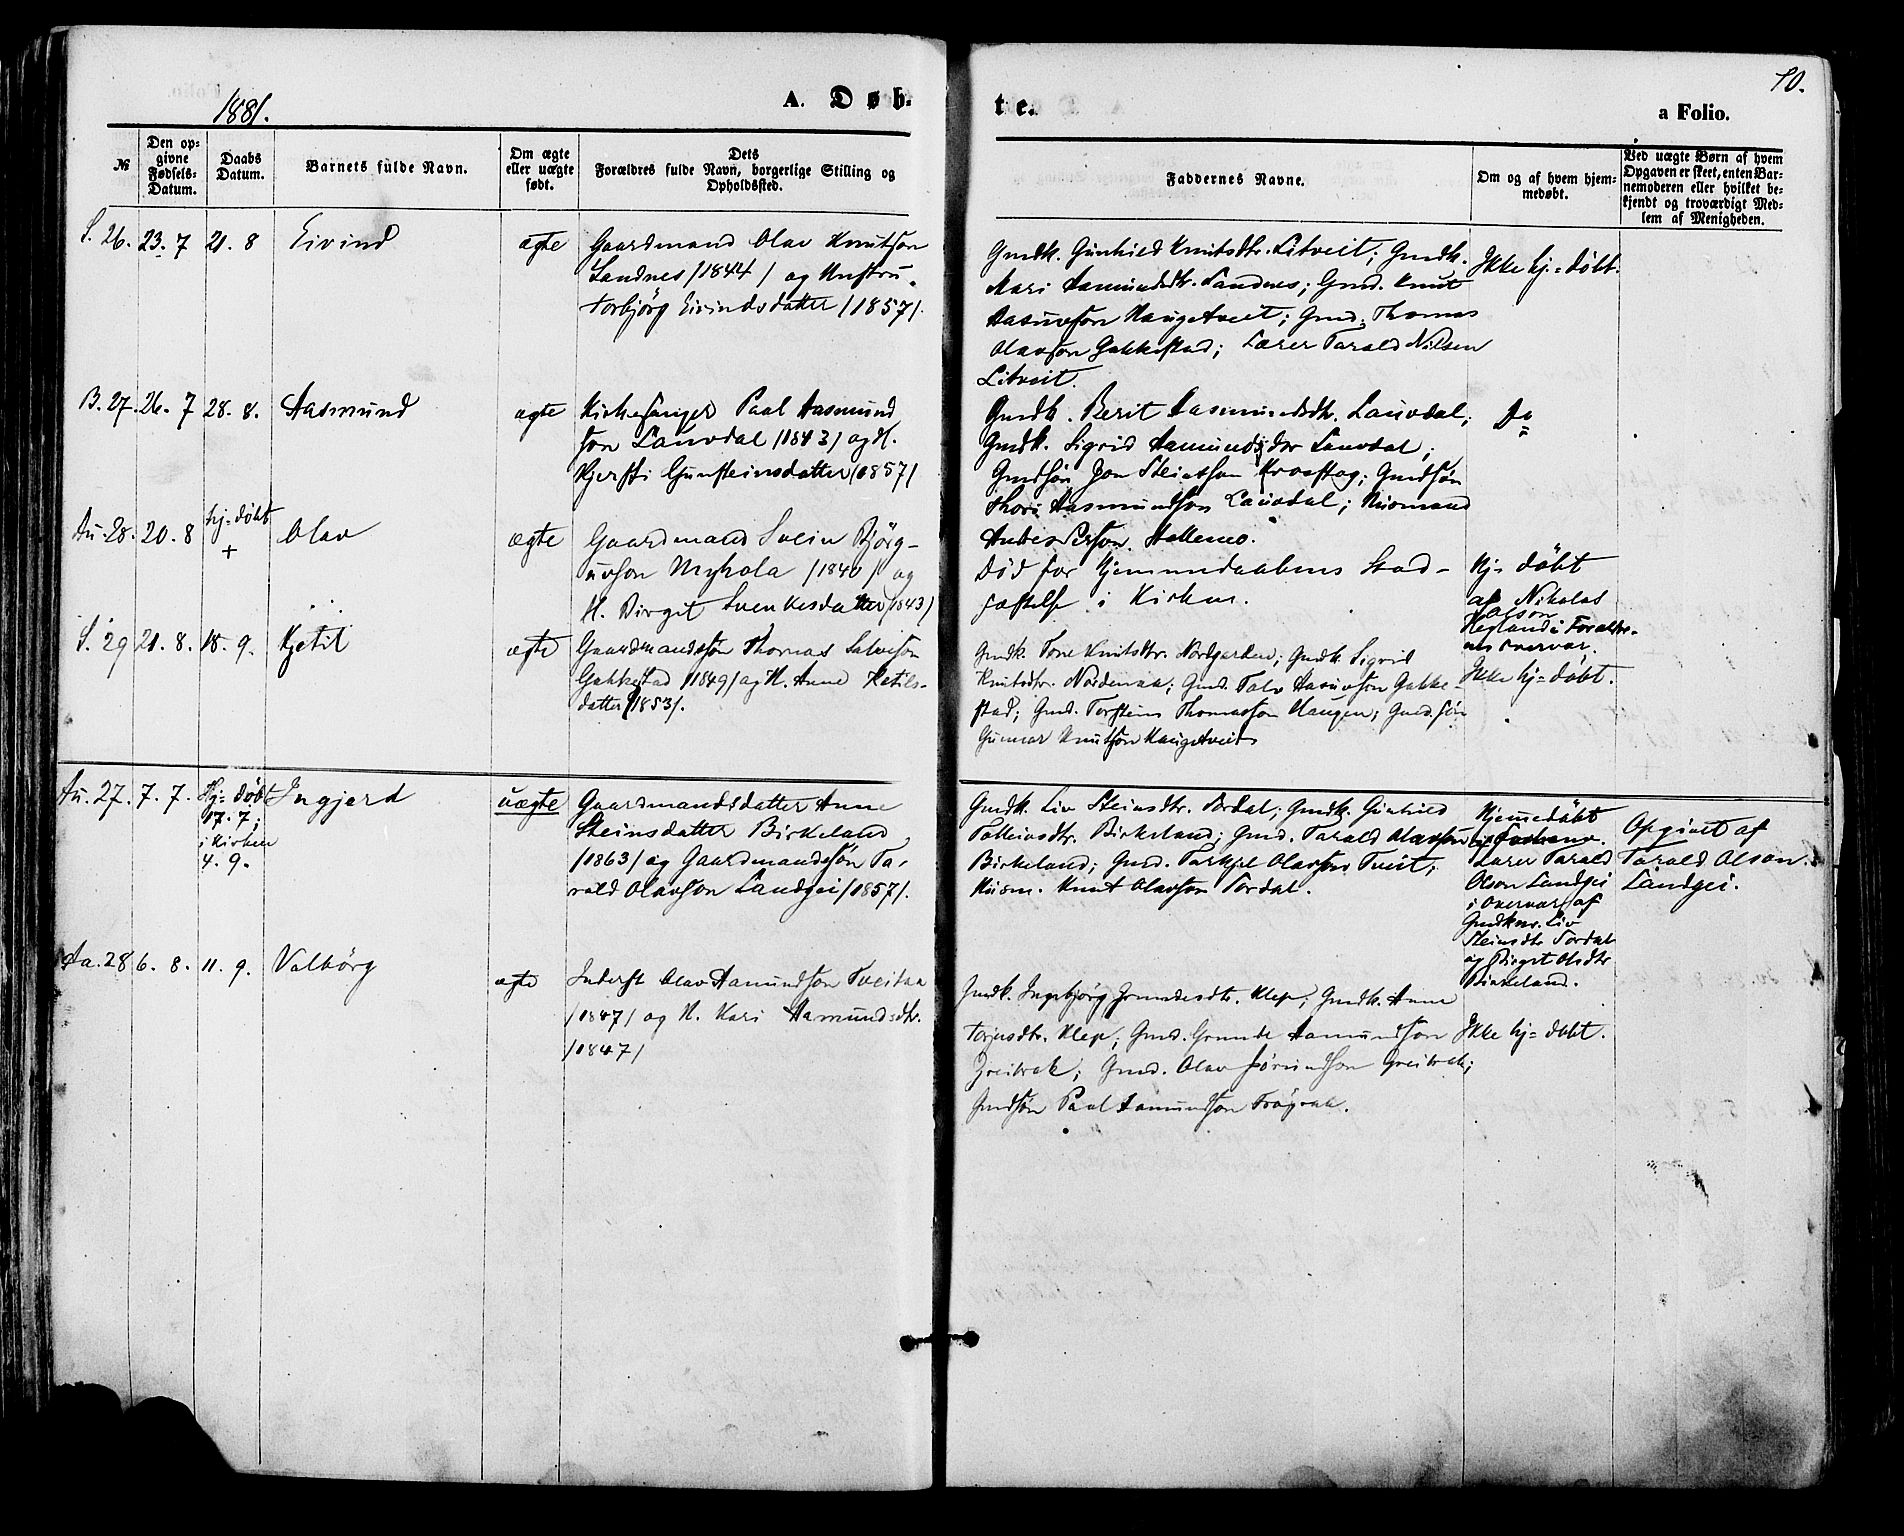 1881.
A. Døb-
te.
10.
a Folio.
№
Den op-
givne
Fødsels-
Datum.
Daabs
Datum.
Barnets fulde Navn.
Om ægte
eller uægte
født.
Dets
Forældres fulde Navn, borgerlige Stilling og
Opholdssted.
Faddernes Navne.
Om og af hvem hjem-
medøbt.
Ved uægte Børn af hvem
Opgaven er skeet, enten Bar-
nemoderen eller hvilket be-
kjendt og troværdigt Med-
lem af Menigheden.
S. 26. 23. 7 21. 8 Eivind ægte
Gaardmand Olav Knutsøn
Sandnes /1844/ og Hustru
Torbjörg Eivindsdatter /1857/.
Gmdk. Gunhild Knutsdtr. Litveit; Gmdk.
Mari Aamundsdtr. Sandnes; Gmd. Knut
Aasuvsøn Haugetveit; Gmd. Thomas
Olavsøn Gakkestad; Lærer Tarald Nilsen
Litveit.
Ikke hj=døbt.
B. 27. 26. 7 28. 8. Aasmund ægte
Kirkesanger Paal Aasmund
søn Lauvdal /1843/ og H.
Kjersti Gunsteinsdatter /1857/
Gmdk. Berit Aasmundsdtr. Lauvdal;
Gmdk. Sigrid Aamundsdtr Lauvdal;
Gmdsøn Jon Steinsson; Gmdsøn
Thore Aasmundsøn Lauvdal;
Anders Persøn
Do
Au. 28. 20. 8 hj=døbt
+
Olav ægte
Gaardmand Svein Björg-
uvson /1840/ og
H. Birgit Svenkesdatter /1843/
Død før Hjemmedaabens Stad-
fæstelse i Kirken.
Hj= døbt
af Nikolas
Olsøn
Hegland i Forældre-
nes Overvær.
S. 29 21. 8. 18. 9. Kjetil ægte
Gaardmandssøn Thomas Salvesøn
Gakkestad /1849/ og H. Anne Ketils-
datter /1853/.
Gmdk. Tone Knutsdtr. Nordgarden; Gmdk. Sigrid
Knutsdtr.; Gmd. Talv Aasuvsøn Gakke-
stad; Gmd. Torstein Thomassøn Haugen; Gmd.søn
Gunnar Knutsøn Haugetveit
Ikke hj=døbt.
Au. 27. 7. 7. Hj= døbt
17. 7;
i Kirken
4. 9.
Ingjerd uægte
Gaardmandsdatter Anne
Steinsdatter Birkeland
/1863/ og Gaardmandssøn Ta-
rald Olavsøn Landgei /1857/.
Gmdk. Liv Steinsdtr. Tordal; Gmdk. Gunhild
Tolleivsdtr. Birkeland; Gmd. Tarald Olavsøn
Birkeland; Gmd. Tarkjel Olavsøn Tveit;
Huusm. Knut Olavsøn Tordal.
Hjemmedøbt
Lærer Tarald
Olson Landgei
i Overvær af
Gmdknr. Liv
Steinsdtr Tordal
og Birget Olsdtr
Birkeland.
Opgivet af
Tarald Olson
Landgei.
Aa. 28 6. 8. 11. 9. Valbörg ægte
Inderst Olav Aamundsøn Tveitaa
/1847/ og H. Kari Aamundsdtr.
/1847/
Gmdk. Ingebjörg Grundesdtr. Klep; Gmdk. Anne
Torjusdtr. Klep; Gmd. Grunde Aamundsøn
Greibrok; Gmd. Olav Jörundsøn Greibrok;
Gmdsøn Paal Aamundsøn
Ikke hj= døbt.